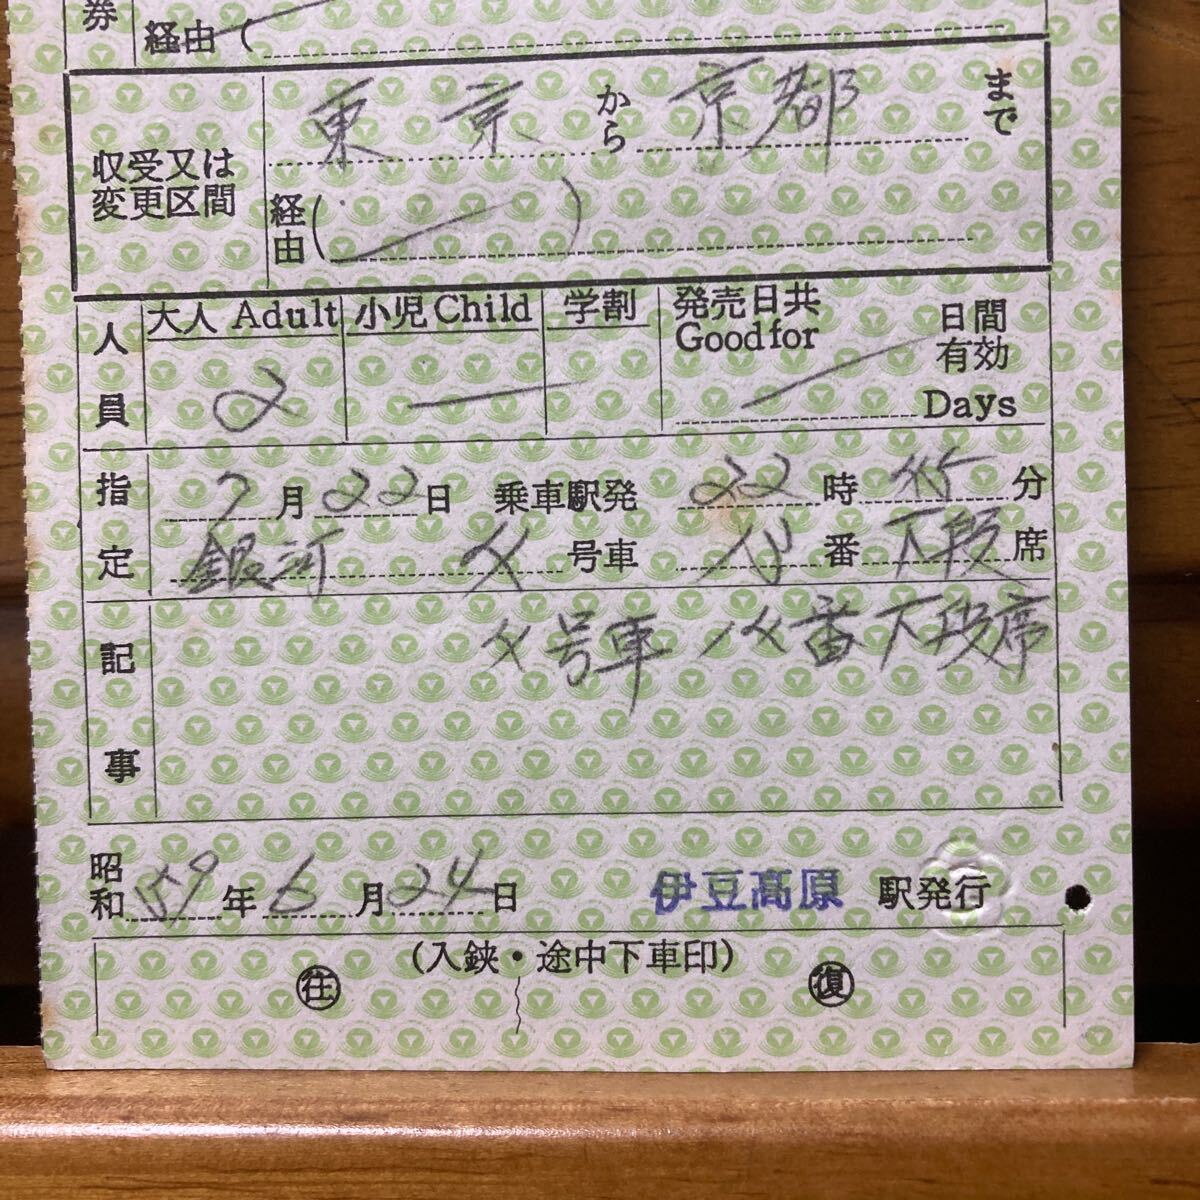 券
経由(
収受又は
変更区間
東京から京都まで
経由( )
人員
大人 Adult 小児 Child 学割 発売日共 日間
Good for 有効
2 Days
指定
7月22日 乗車駅発 22時45分
銀河 4号車 番 下段席
記事
4号車 14番下段席
昭和59年6月24日 伊豆高原 駅発行
(入鋏・途中下車印)
往 復